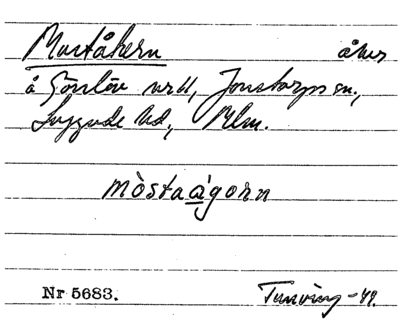 Muståkern åker
å Görslöv nr 11, Jonstorps sn.,
Luggude hd, Mlm.
mòstaágorn
Nr 5683. Tunving -49.